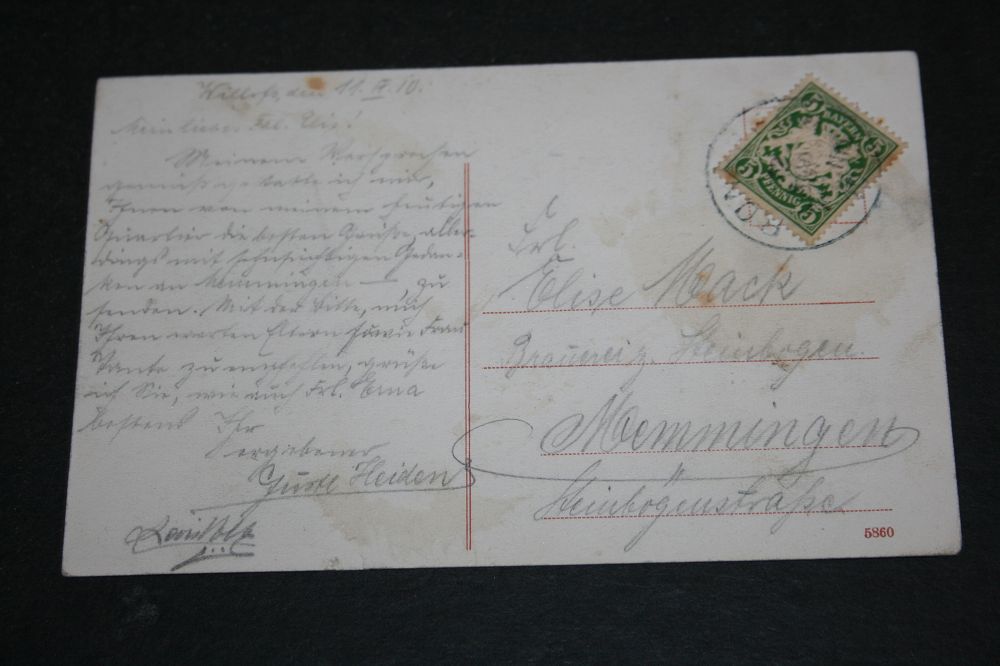 Willofs, den 11. IX. 10.
Mein liebes Frl. Elis!
Meinem Versprechen
gemäß gestatte ich mir,
Ihnen von meinem heutigen
Quartier die besten Grüße, aller-
dings mit sehnsüchtigen Gedan-
ken an Memmingen – zu
senden. Mit der Bitte, mich
Ihren werten Eltern sowie Frau
Tante zu empfehlen, grüße
ich Sie, wie auch Frl. Erna
bestens Ihr
ergebener
Heiden
BAYERN
5 5 5
PFENNIG
Frl.
Elise Mack
Brauerei z. Steinbogen
Memmingen
Steinbogenstraße
5860